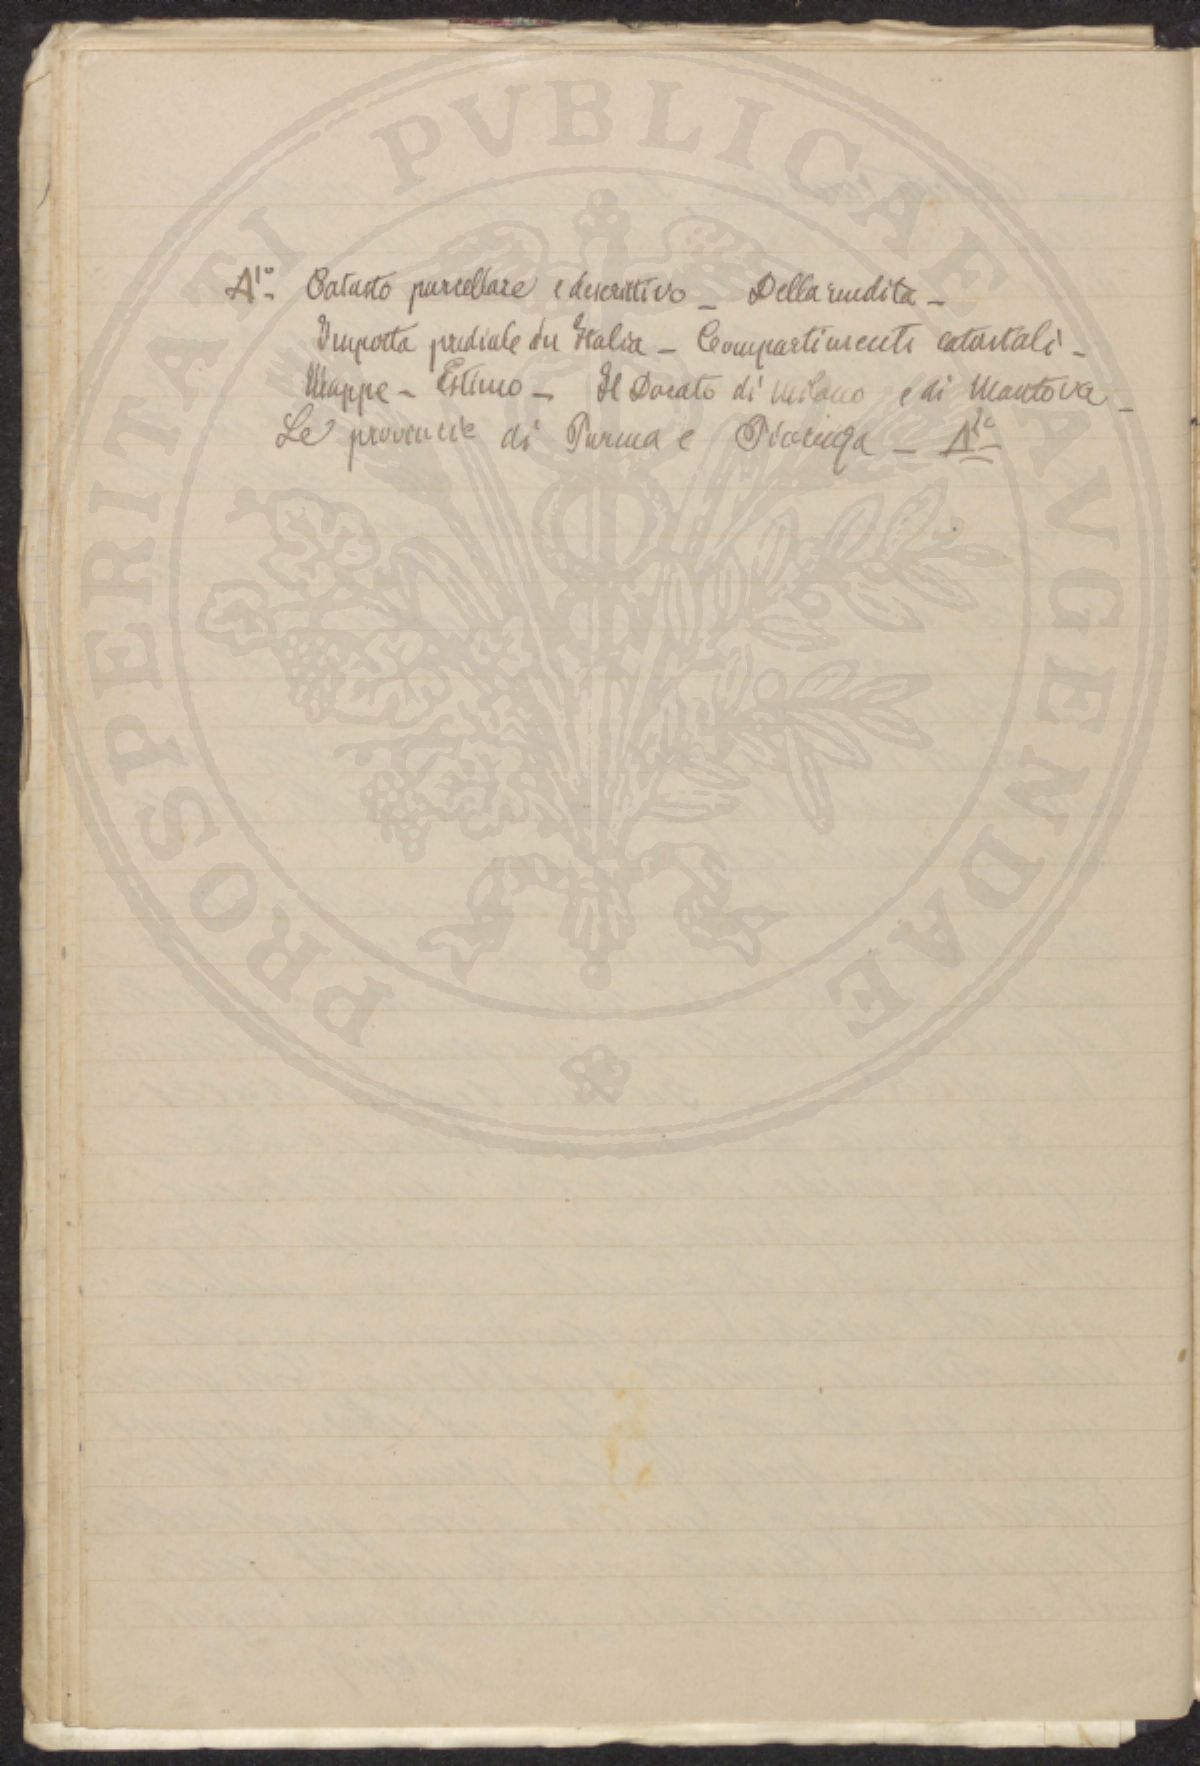 PROSPERITATI PVBLICAE AVGENDAE
A1º- Catasto parcellare e descrittivo - Della rendita -
Imposta prediale in Italia - Compartimenti catastali -
Mappe - Estimo - Il Docato di Milano e di Mantova -
Le provincie di Parma e Piacenza - A1º